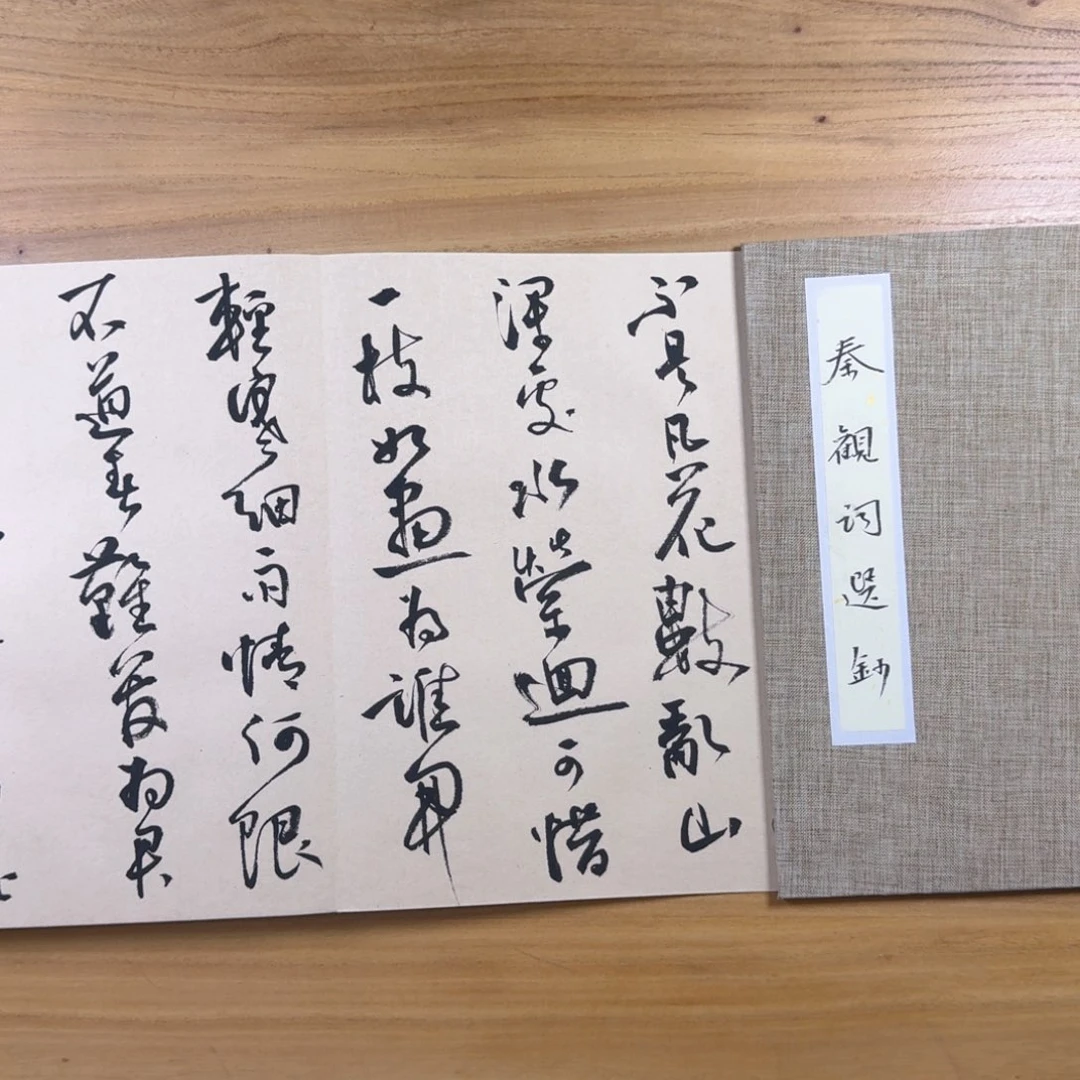 秦観詞選鈔
不是凡花數亂山
深處水縈迴可惜
一枝如畫為誰開
輕寒細雨情何限
不道春難管為君